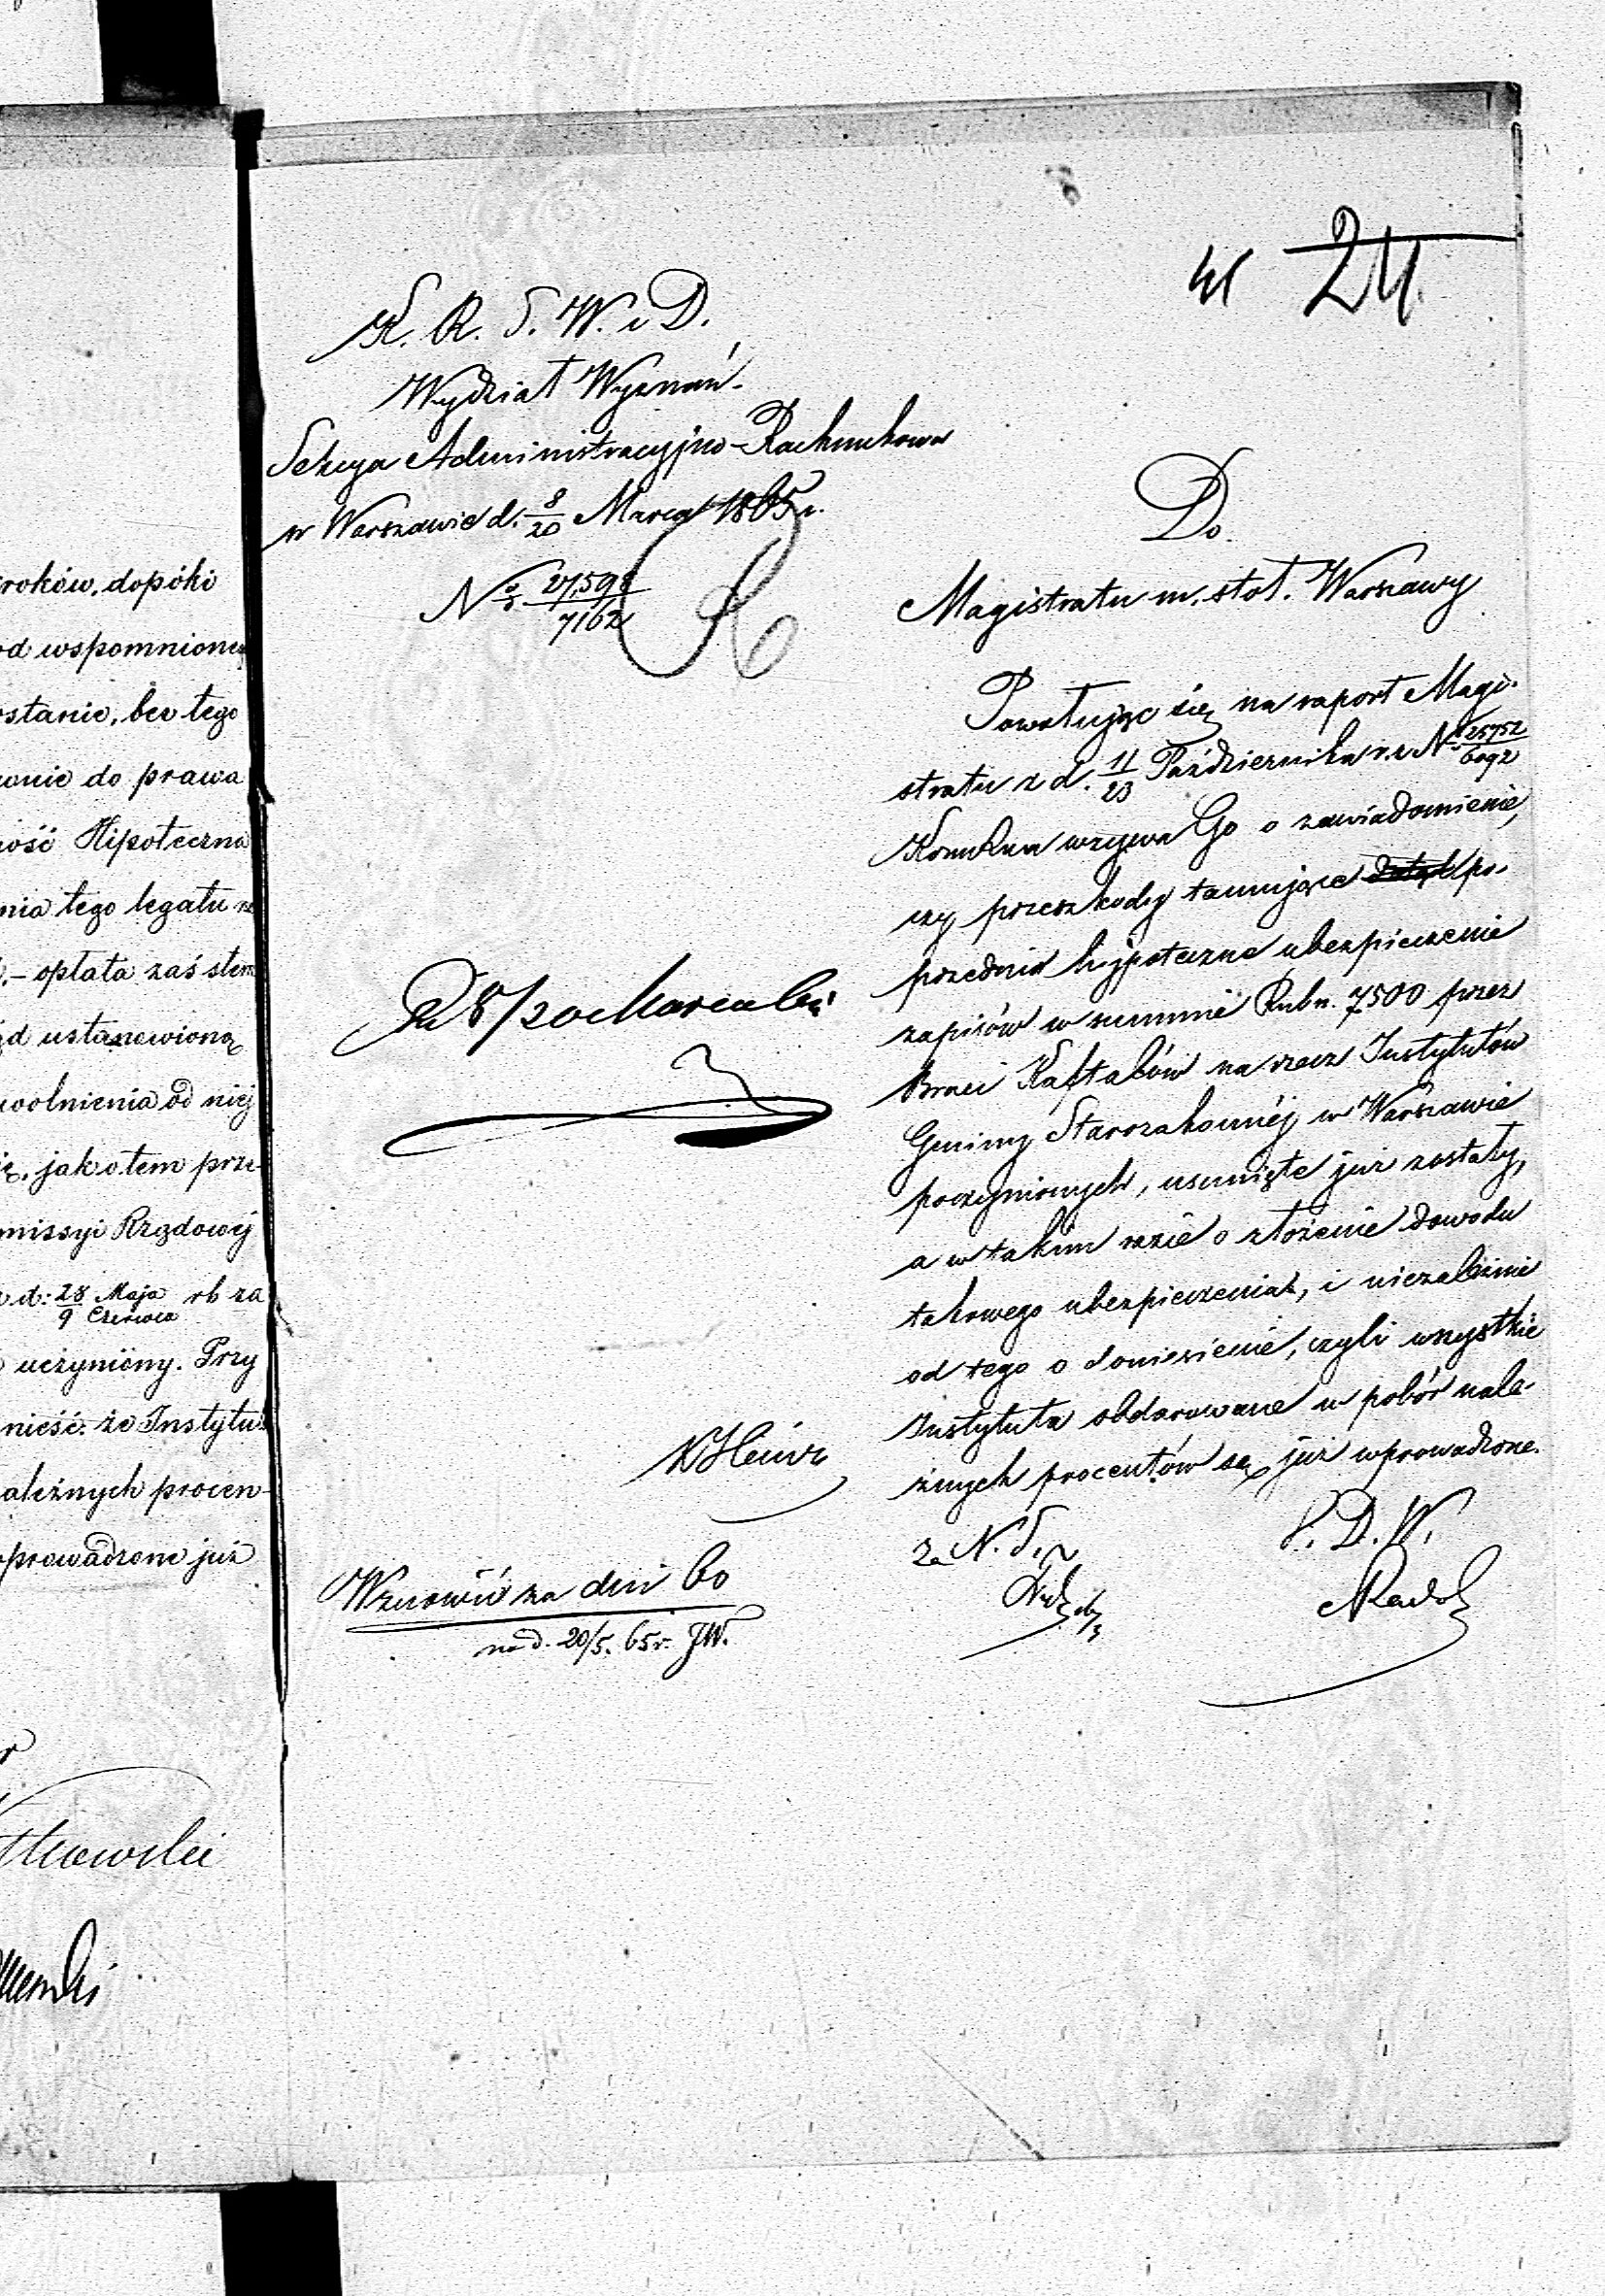 roków, dopóki
od wspomnionej
ostanie, bez tego
wanie do prawa
ność Hipoteczna
nia tego legatu
– opłata zaś stem
d ustanowioną
wolnienia od niej
jak o tem prze-
missyi Rządowej
d: 28/9 Maja/Czerwca rb za
uczyniony. Przy
nieść: że Instytu
ależnych procen-
prowadzone już
24
K. R. S. W. i D.
Wydział Wyznań.
Sekcya Administracyjno-Rachunkowa
w Warszawie d. 8/20 Marca 1865 r.
No 27,598/7162
Do
Magistratu m. stoł. Warszawy
Powołując się na raport Magi-
stratu z d. 11/23 Października r.z. No 25752/6092
Kom Rzą wzywa Go o zawiadomienie,
czy przeszkody tamujące po-
przednio hypoteczne ubezpieczenie
zapisów w summie Rubsr. 7500 przez
Braci Kaftalów na rzecz Instytutów
Gminy Starozakonnéj w Warszawie
poczynionych, usunięte już zostały,
a w takim razie o złożenie dowodu
takowego ubezpieczenia, i niezależnie
od tego o doniesienie, czyli wszystkie
Instytuta obdarowane w pobór nale-
żnych procentów są już wprowadzone.
za N. S.
P. D. W.
d 8/20 Marca
Wznowić za dni 60
na d. 20/5. 65 r. JW.